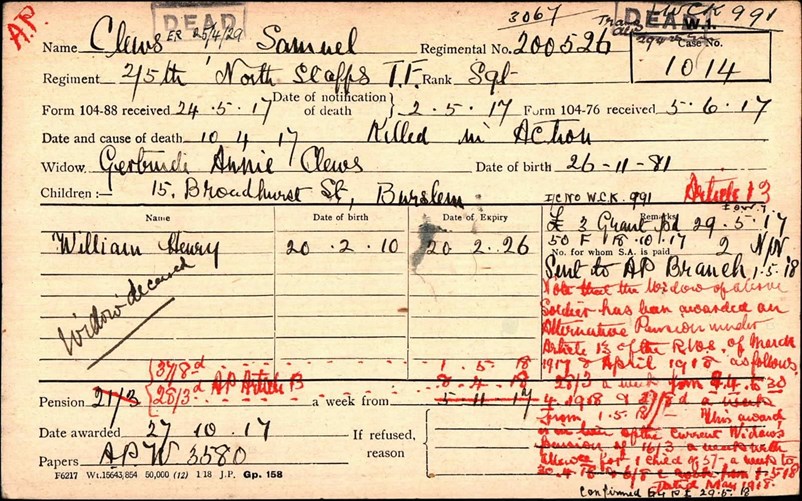 A.P. DEAD ER 25/4/29 3067 DEAD W.1. WCK 991
Name Clews Samuel Regimental No. 200526 Case No.
Regiment 2/5th North Staffs T.F. Rank Sgt 1014
Form 104-88 received 24.5.17 Date of notification of death } 2.5.17 Form 104-76 received 5.6.17
Date and cause of death 10 4 17 Killed in Action
Widow Gertrude Annie Clews Date of birth 26-11-81
Children :— 15, Broadhurst St, Burslem I.C. NO W.C.K. 991 Article 13
Name Date of birth Date of Expiry Remarks
£3 Grant pd 29.5.17
William Henry 20.2.10 20.2.26 50 F 18.10.17 2 N/N
No. for whom S.A. is paid
Sent to AP Branch 1.5.18
Widow deceased
Note that the Widow of above
Soldier has been awarded an
Alternative Pension under
Article 13 of the R.W. of March
1917 & April 1918 as follows
37/8d 1.5.18
28/3d AP Article 13 8.4.18 28/3 a week from 8.4. to 30
Pension 21/3 a week from 5-11-17 4.1918 & 37/8d a week
From 1.5.18 This award
Date awarded 27 10 17 If refused, reason
is in lieu of the current Widows
pension of 16/3 a week with
Papers APW 3580 allowance for 1 child of 5/- a week to
30.4.18 & 6/8 a week from 1.5.18
Dated May 1918.
F6217 Wt.15643,854 50,000 (12) 1 18 J.P. Gp. 158 Confirmed 29.5.18